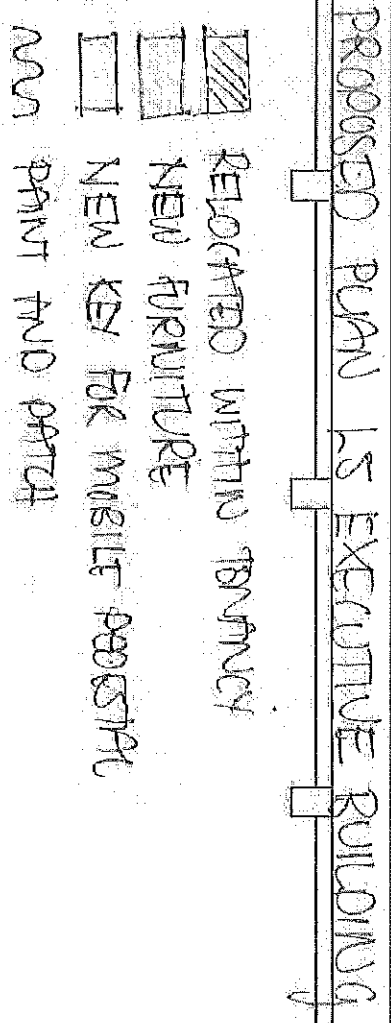 PROPOSED PLAN L5 EXECUTIVE BUILDING
RELOCATED WITHIN TENANCY
NEW FURNITURE
NEW KEY FOR MOBILE PEDESTAL
PAINT AND PATCH